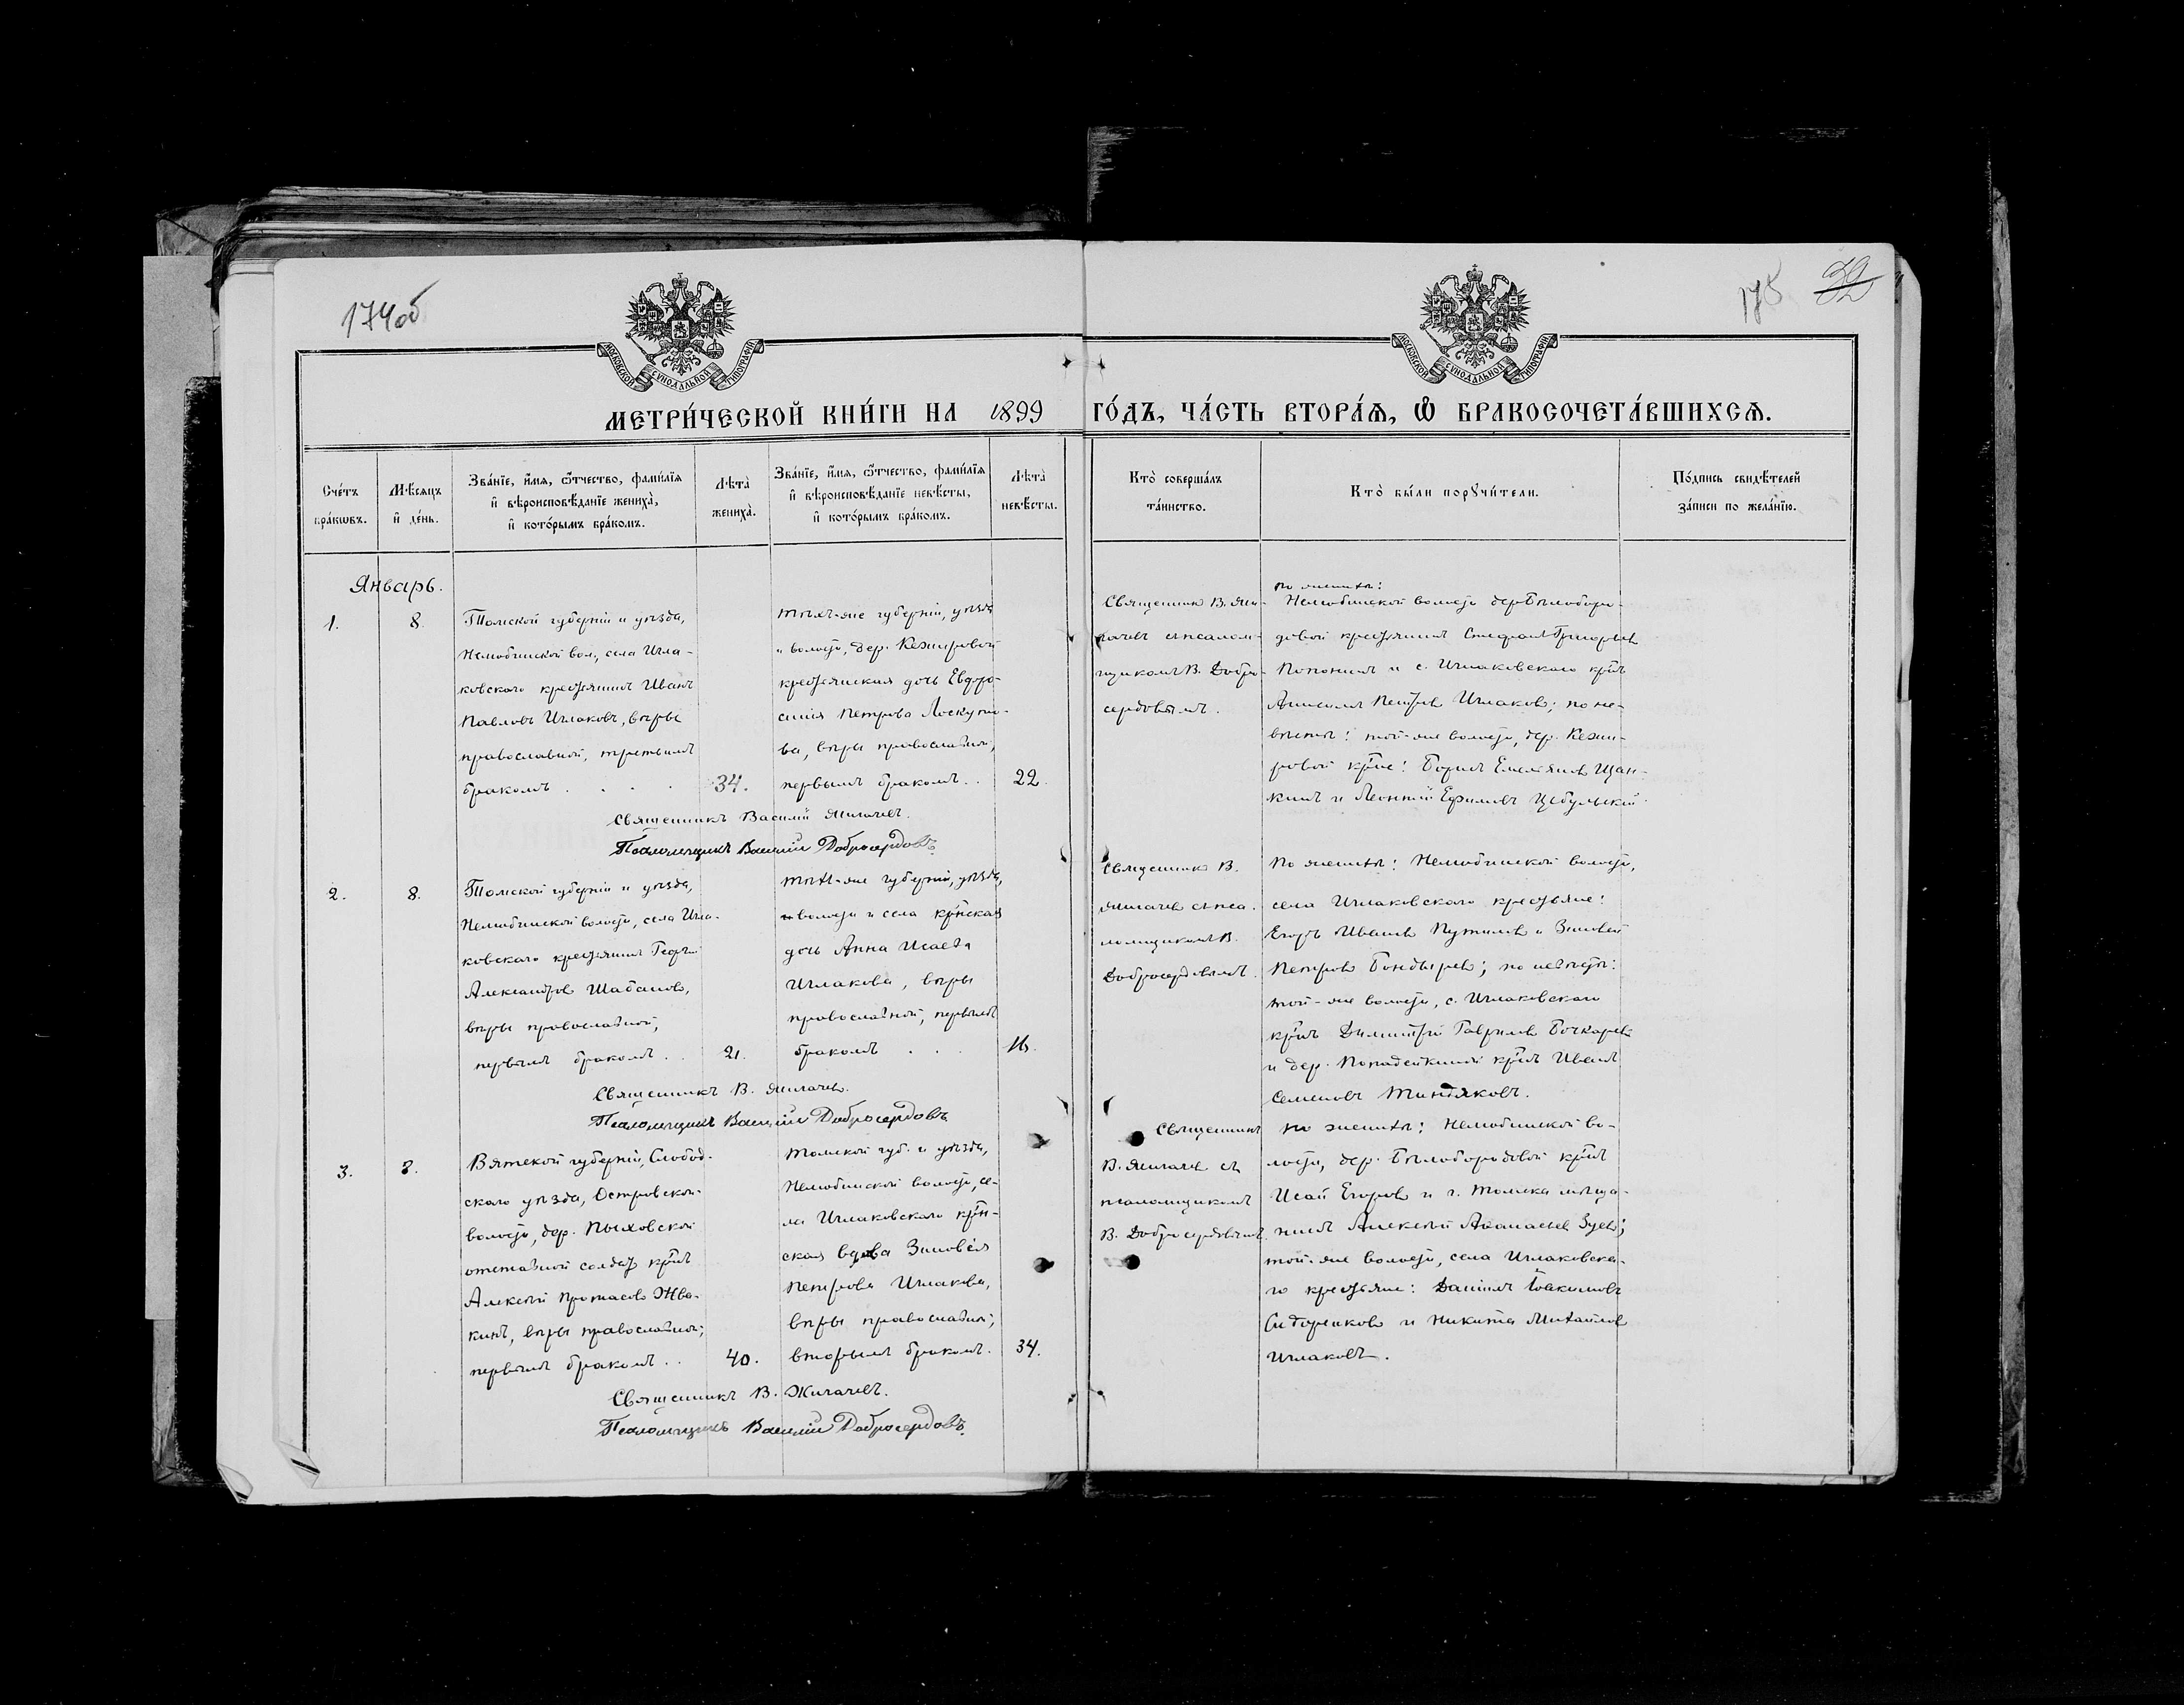 174об
175
32
МОСКОВСКОЙ СУНОДАЛЬНОЙ ТИПОГРАФІИ
МОСКОВСКОЙ СУНОДАЛЬНОЙ ТИПОГРАФІИ
МЕТРИ́ЧЕСКОЙ КНИ́ГИ НА 1899 ГО́ДЪ, ЧА́СТЬ ВТОРА́Ѧ, Ѽ БРАКОСОЧЕТА́ВШИХСѦ.
Сче́тъ
бра́кѡвъ.
Мѣ́сяцъ
и҆ де́нь.
Зва́нїе, и҆́мя, ѻ҆́тчество, фами́лїя
и҆ вѣроисповѣ́данїе жениха̀,
и҆ кото́рымъ бра́комъ.
Лѣта̀
жениха̀.
Зва́нїе, и҆́мя, ѻ҆́тчество, фами́лїя
и҆ вѣроисповѣ́данїе невѣ́сты,
и҆ кото́рымъ бра́комъ.
Лѣта̀
невѣ́сты.
Кто̀ соверша́лъ
та́инство.
Кто̀ бы́ли порꙋчи́тели.
По́дпись свидѣ́телей
за́писи по жела́нїю.
Январь.
1.
8.
Томской губерніи и уѣзда,
Нелюбинской вол., села Игла-
ковскаго крестьянинъ Иванъ
Павловъ Иглаковъ, вѣры
православной, третьимъ
бракомъ . . . .
34.
Тѣхъ-же губерніи, уѣзда
и волости, дер. Кежировой
крестьянская дочь Евфро-
синія Петрова Лоскуто-
ва, вѣры православной,
первымъ бракомъ . .
22.
Священникъ В. Жи-
гачевъ съ псалом-
щикомъ В. Добро-
сердовымъ.
по женихѣ:
Нелюбинской волости дер Бѣлоборо-
довой крестьянинъ Стефанъ Григорьевъ
и с. Иглаковскаго кр̃нъ
Петровъ Иглаковъ; по не-
вѣстѣ: той-же волости, дер. Кежи-
ровой кр̃не: Борисъ Емельяновъ Щап-
кинъ и Леонтій Ефимовъ Цебульскій.
Священникъ Василій Жигачевъ.
Псаломщикъ Василій Добросердовъ.
2.
8.
Томской губерніи и уѣзда,
Нелюбинской волости, села Игла-
ковскаго крестьянинъ Георгій
Александровъ Шабановъ,
вѣры православной,
первымъ бракомъ . .
21.
Тѣхъ-же губерніи, уѣзда,
волости и села кр̃нская
дочь Анна Исаева
Иглакова, вѣры
православной, первымъ
бракомъ . . .
16.
Священникъ В.
Жигачевъ съ пса-
ломщикомъ В.
Добросердовымъ.
По женихѣ: Нелюбинской волости,
села Иглаковскаго крестьяне:
Егоръ Ивановъ Путиловъ и Зиновій
Петровъ Бондыревъ; по невѣстѣ:
той-же волости, с. Иглаковскаго
кр̃нъ Димитрій Гавриловъ Бочкаревъ
и дер. Попадейкиной кр̃нъ Иванъ
Семеновъ Тиндяковъ.
Священникъ В. Жигачевъ.
Псаломщикъ Василій Добросердовъ
3.
8.
Вятской губерніи, Слобод-
скаго уѣзда, Островской
волости, дер. Пыховской
отставной солдатъ кр̃нъ
Алексѣй Протасовъ Жва-
кинъ, вѣры православной,
первымъ бракомъ . .
40.
Томской губ. и уѣзда,
Нелюбинской волости, се-
ла Иглаковскаго кр̃н-
ская вдова Зиновія
Петрова Иглакова,
вѣры православной,
вторымъ бракомъ.
34.
Священникъ
В. Жигачевъ съ
псаломщикомъ
В. Добросердовымъ.
по женихѣ: Нелюбинской во-
лости, дер. Бѣлобородовой кр̃нъ
Исай Егоровъ и г. Томска мѣща-
нинъ Алексѣй Аѳанасьевъ Зуевъ;
той-же волости, села Иглаковска-
го крестьяне: Даніилъ Іоакимовъ
Сидоренковъ и Никита Михайловъ
Иглаковъ.
Священникъ В. Жигачевъ.
Псаломщикъ Василій Добросердовъ.